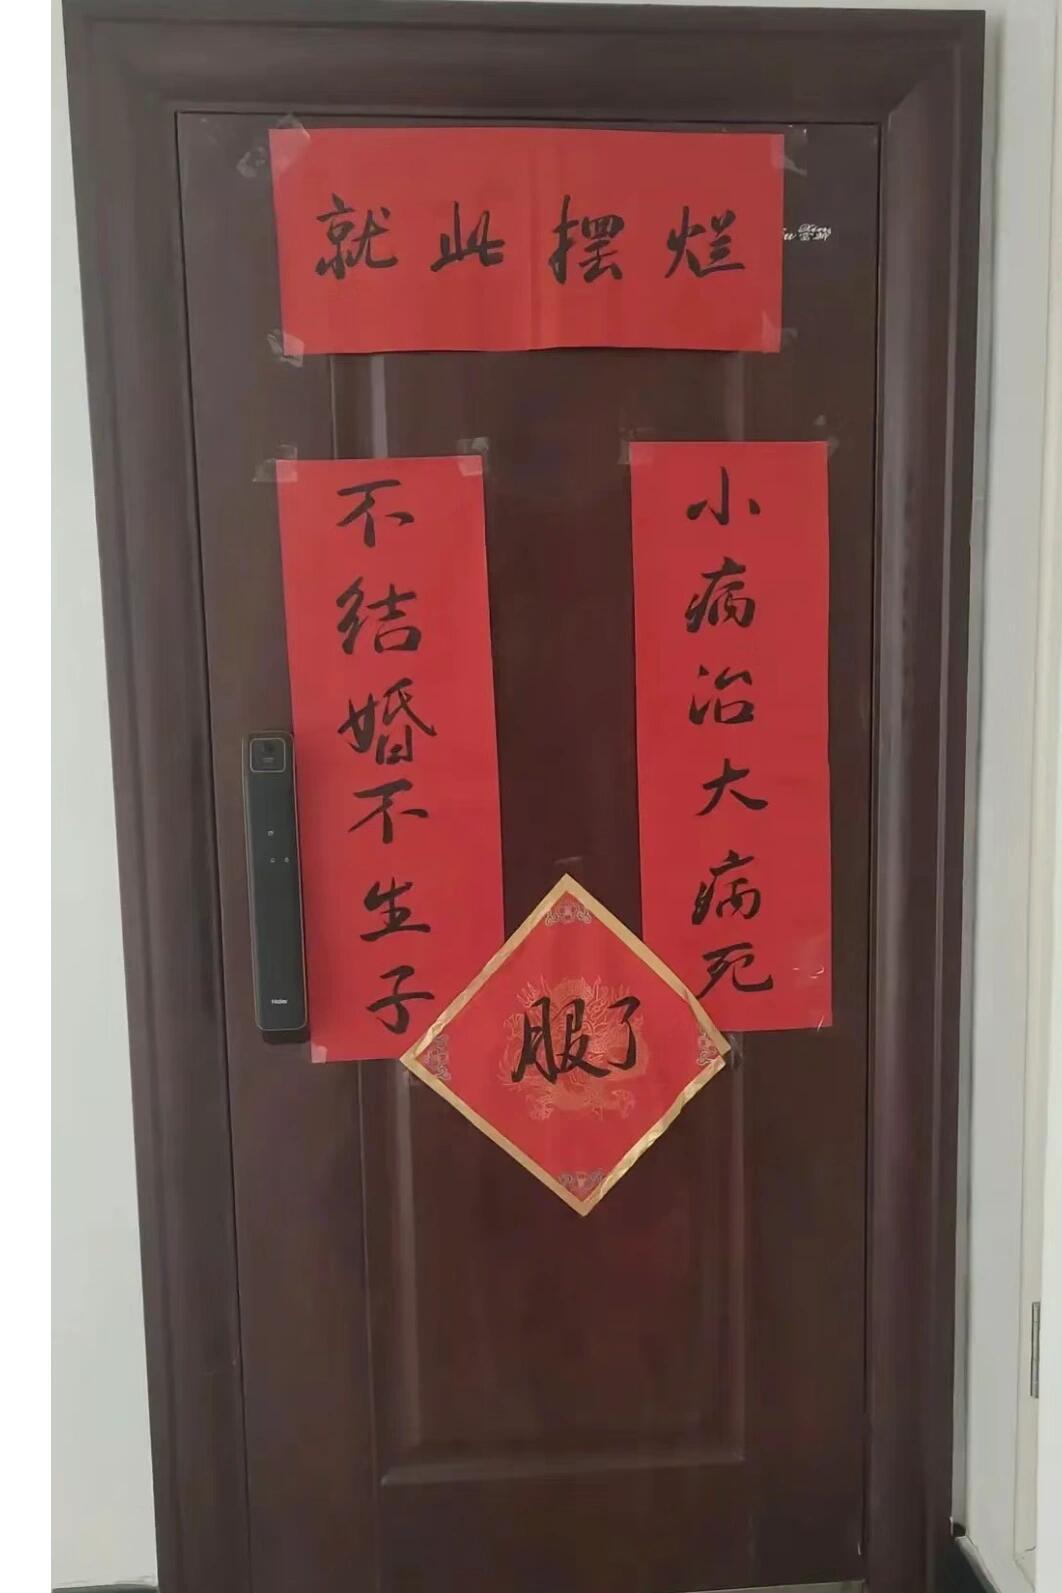 就此摆烂
小病治大病死
不结婚不生子
服了
Haier